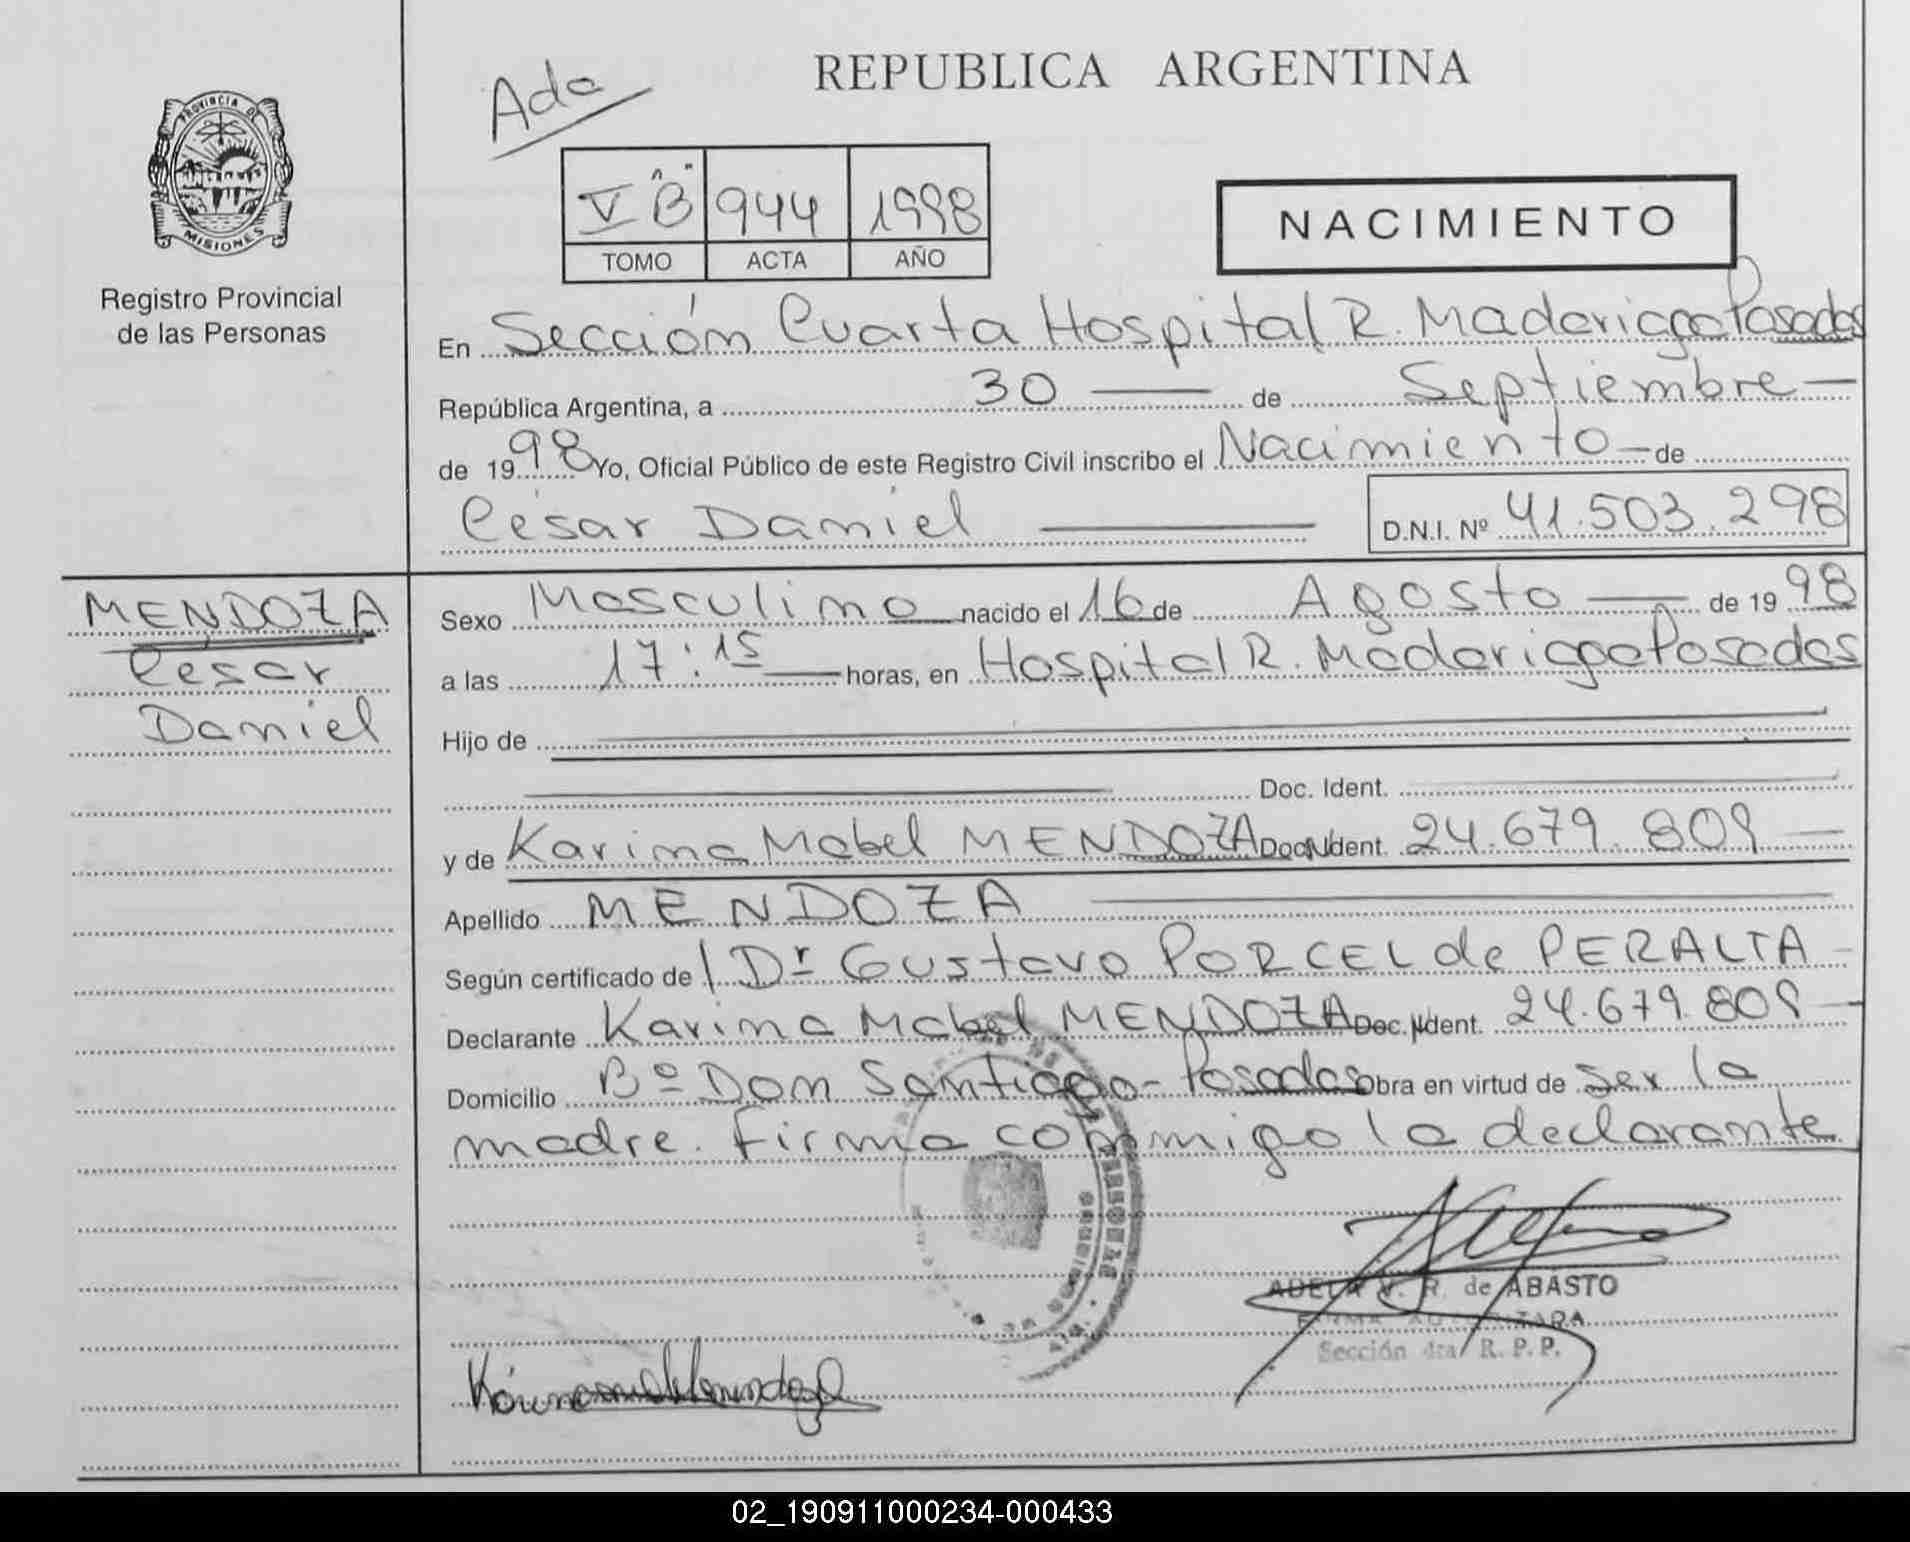 REPUBLICA ARGENTINA
Ada
PROVINCIA DE
MISIONES
Registro Provincial
de las Personas
V "B" 944 1998
TOMO ACTA AÑO
NACIMIENTO
En Sección Cuarta Hospital R. Madariaga Posadas
República Argentina, a 30 de Septiembre
de 1998 Yo, Oficial Público de este Registro Civil inscribo el Nacimiento de
César Daniel D.N.I. Nº 41.503.298
MENDOZA
César
Daniel
Sexo Masculino nacido el 16 de Agosto de 1998
a las 17:15 horas, en Hospital R. Madariaga Posadas
Hijo de
Doc. Ident.
y de Karina Mabel MENDOZA Doc. Ident. 24.679.809
Apellido MENDOZA
Según certificado de Dr Gustavo PORCEL de PERALTA
Declarante Karina Mabel MENDOZA Doc. Ident. 24.679.809
Domicilio Bº Don Santiago - Posadas Obra en virtud de ser la
madre. Firma conmigo la declarante
ADELA V. R. de ABASTO
Sección 4ta R. P. P.
02_190911000234-000433